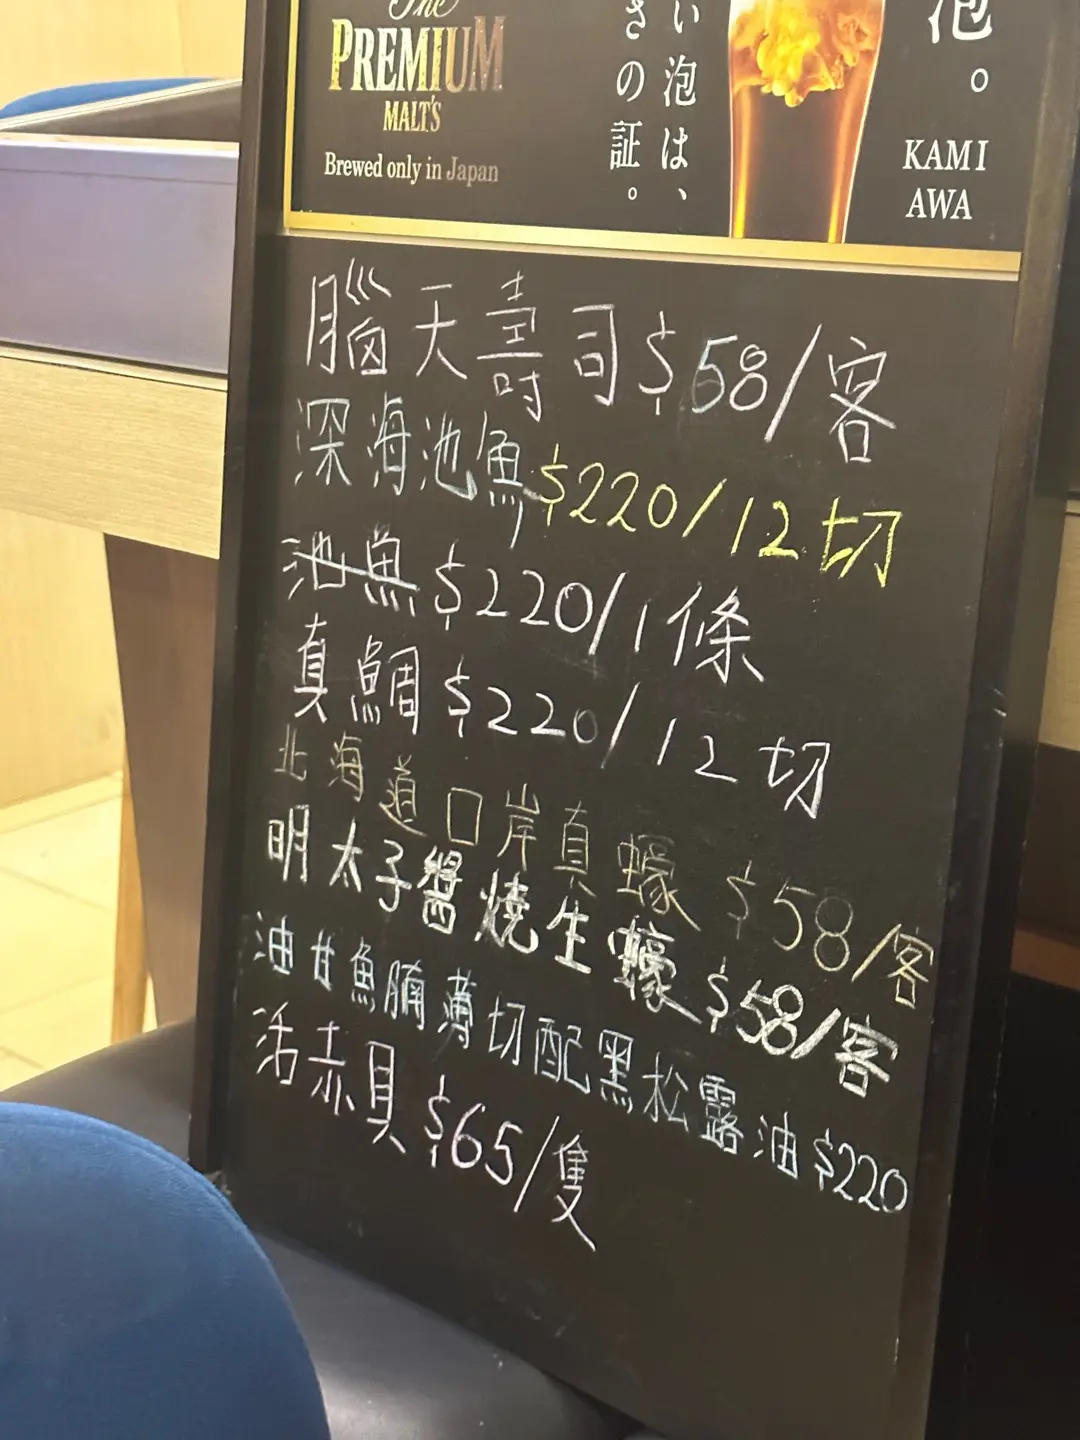 The
PREMIUM
MALT'S
Brewed only in Japan
い泡は、
さの証。
泡。
KAMI
AWA
腦天壽司$58/客
深海池魚$220/12切
池魚$220/1條
真鯛$220/12切
北海道口岸真蠔 $58/客
明太子醬燒生蠔$58/客
油甘魚腩薄切配黑松露油$220
活赤貝$65/隻